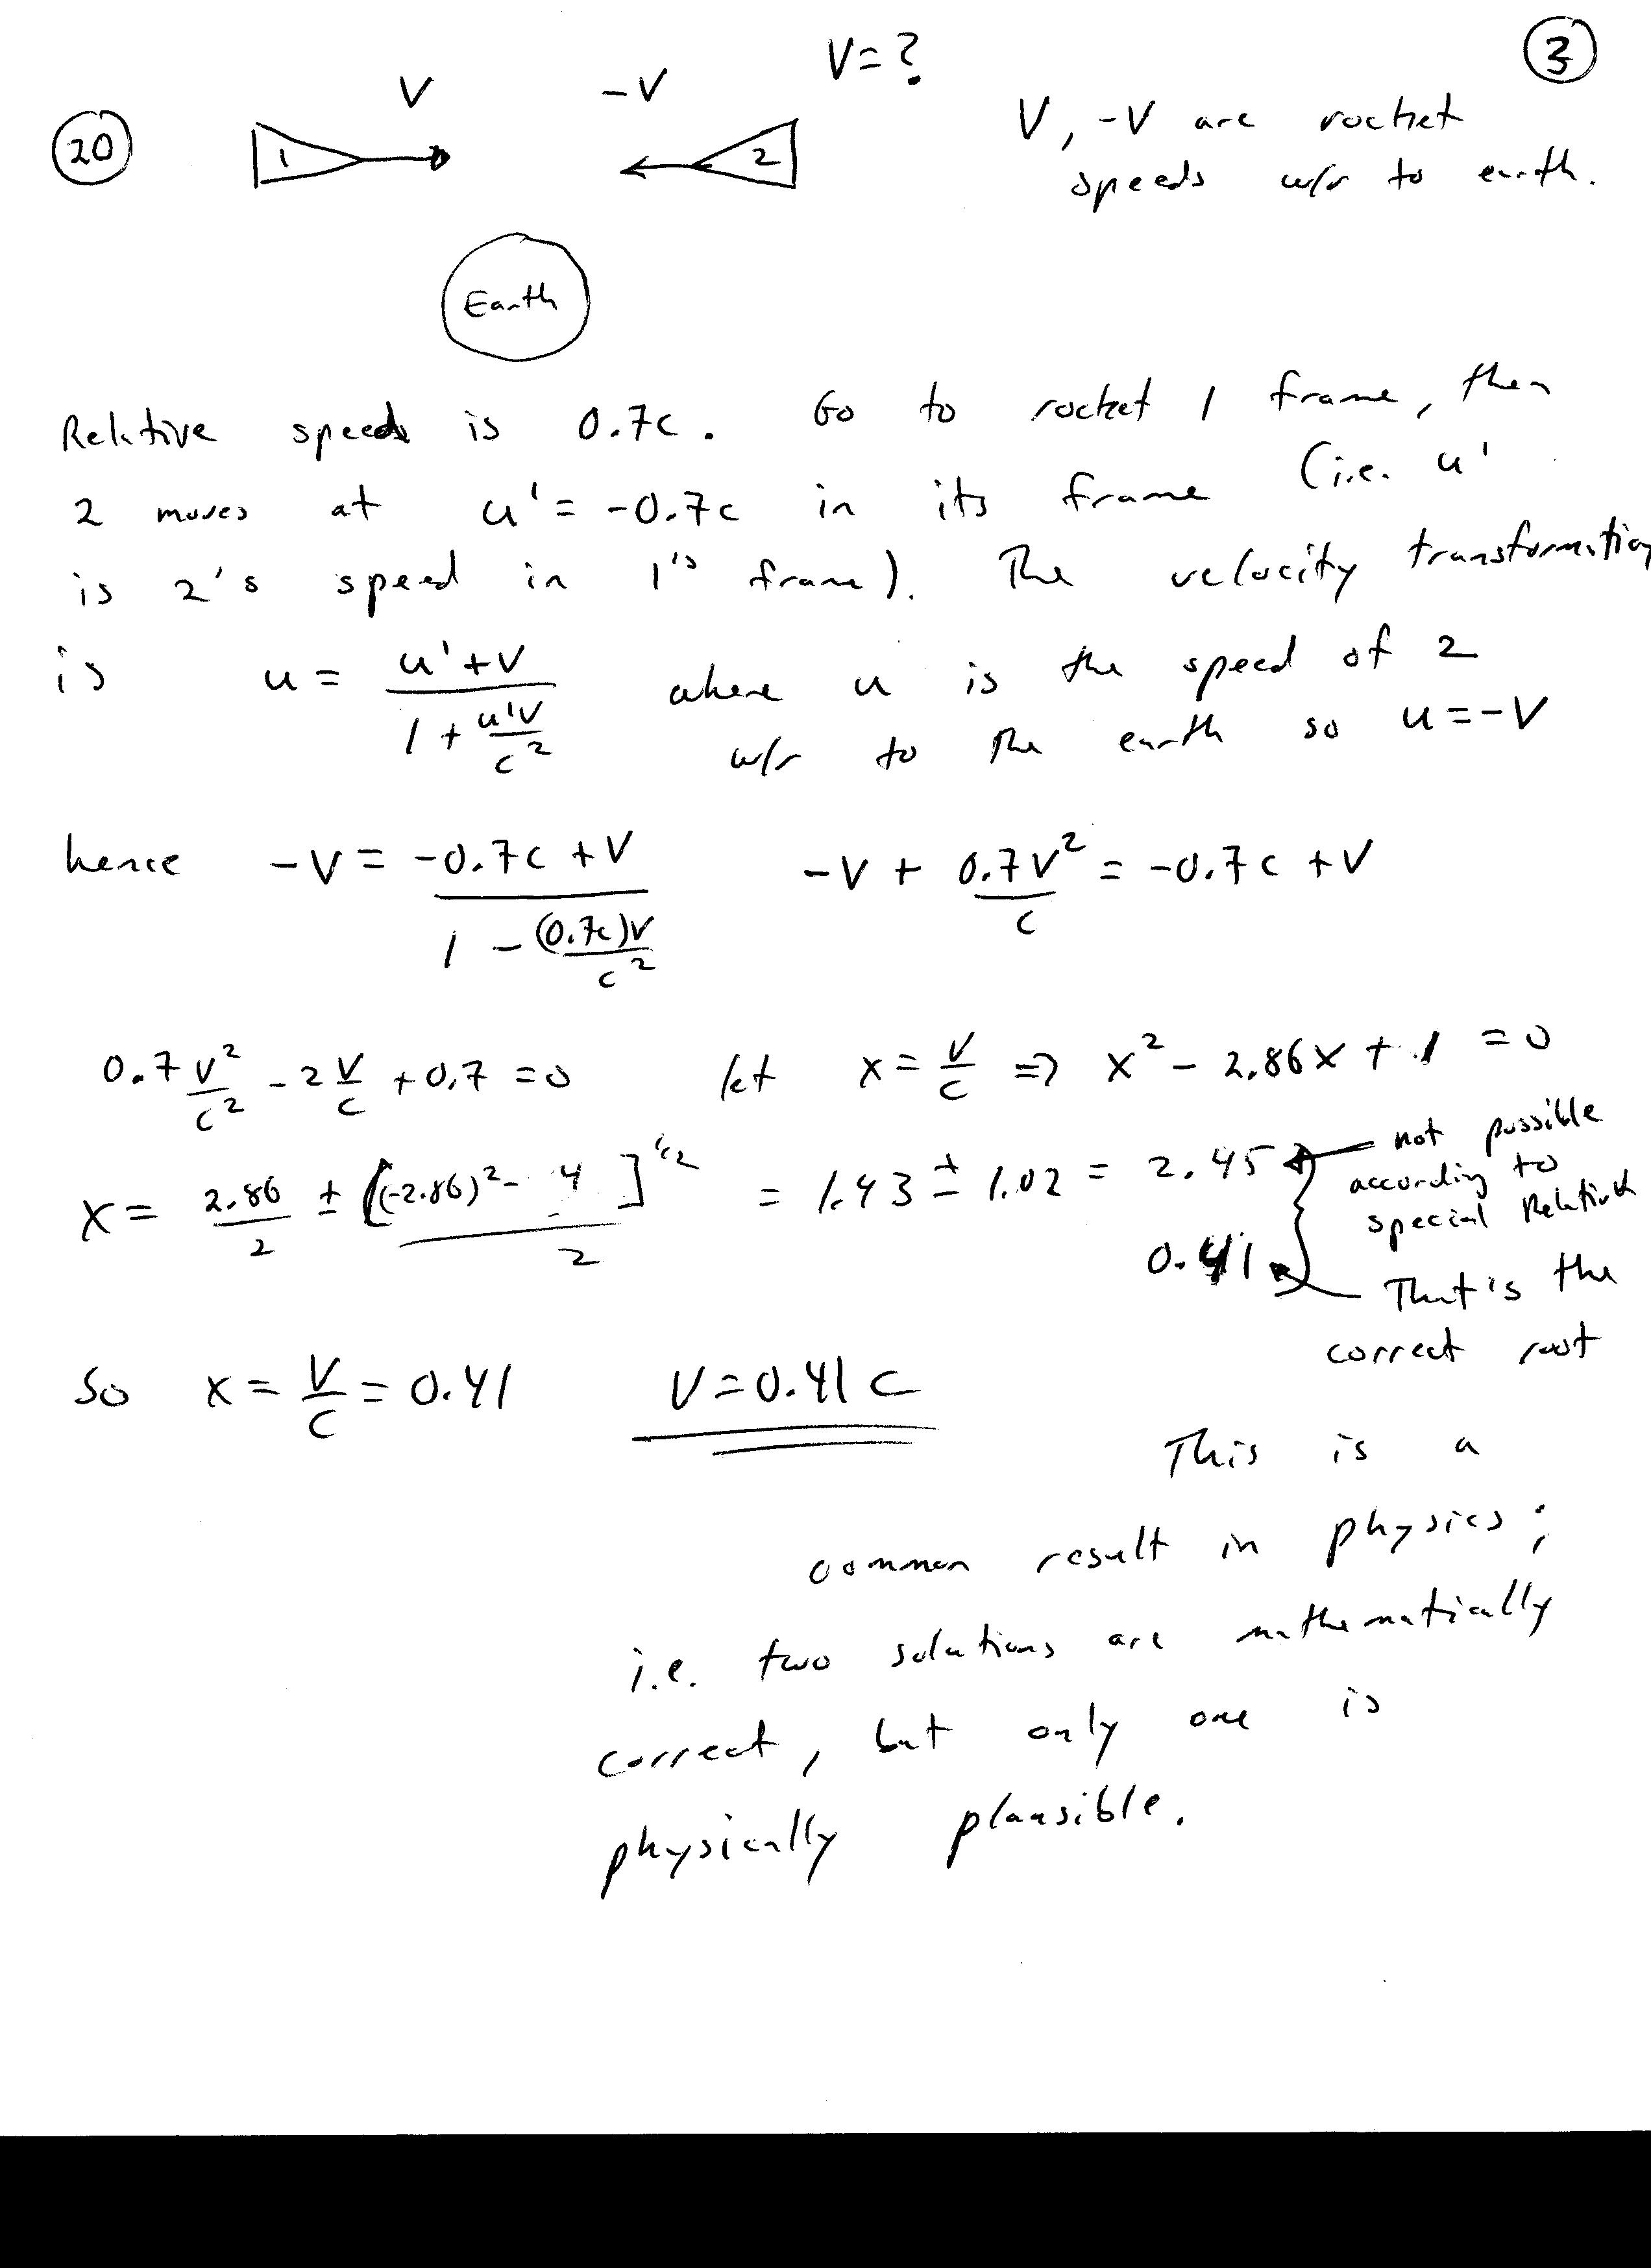 V = ?
3
20
V
-V
V, -V are rocket
speeds w/r to earth.
1
2
Earth
Relative speed is 0.7c. Go to rocket 1 frame, then
2 moves at u' = -0.7c in its frame (i.e. u'
is 2's speed in 1's frame). The velocity transformation
is u = (u' + V) / (1 + u'V/c²) where u is the speed of 2
w/r to the earth so u = -V
hence -V = (-0.7c + V) / (1 - (0.7c)V/c²) -V + 0.7V²/c = -0.7c + V
0.7 V²/c² - 2 V/c + 0.7 = 0 let x = V/c ⇒ x² - 2.86x + 1 = 0
x = 2.86/2 ± [(-2.86)² - 4]^1/2 / 2 = 1.43 ± 1.02 = 2.45
not possible
according to
special
0.41
That's the
correct root
So x = V/c = 0.41 V = 0.41 c
This is a
common result in physics;
i.e. two solutions are mathematically
correct, but only one is
physically plausible.